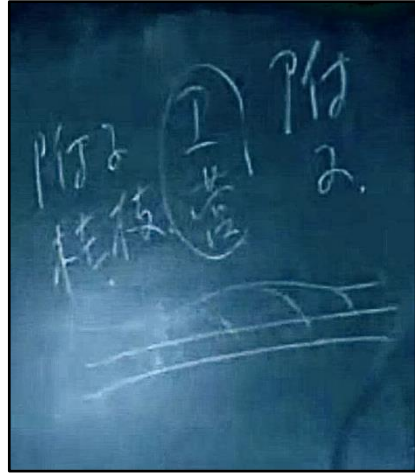 附子
桂枝
卫
营
附
子.